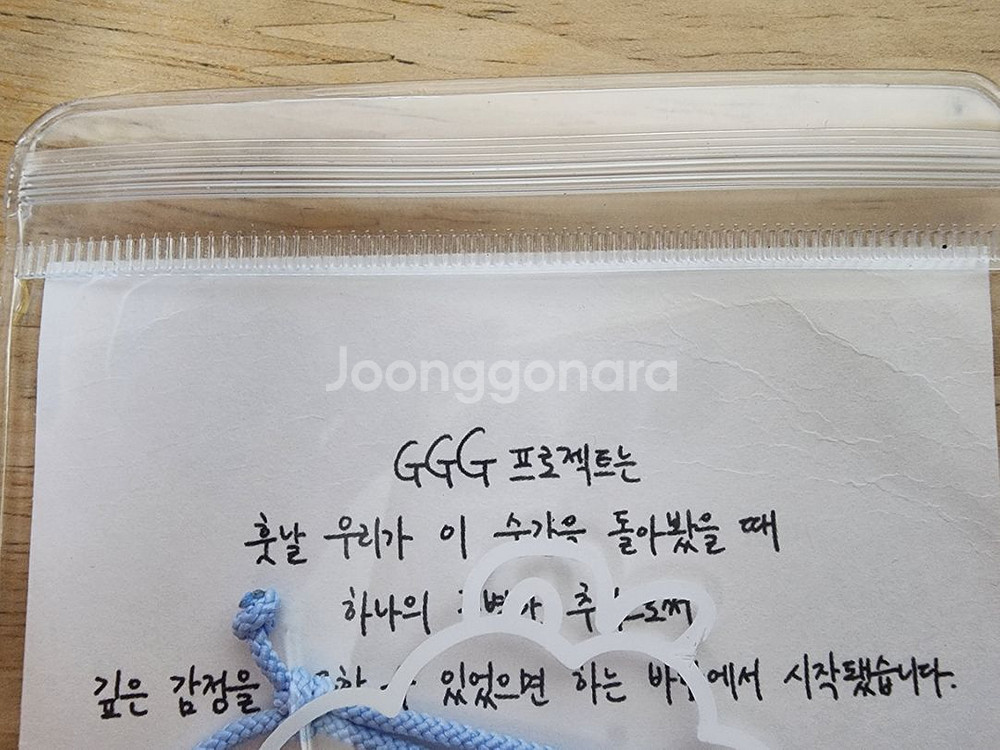 Joonggonara
GGG 프로젝트는
훗날 우리가 이 순간을 돌아봤을 때
하나의 추
깊은 감정을 있었으면 하는 시작됐습니다.